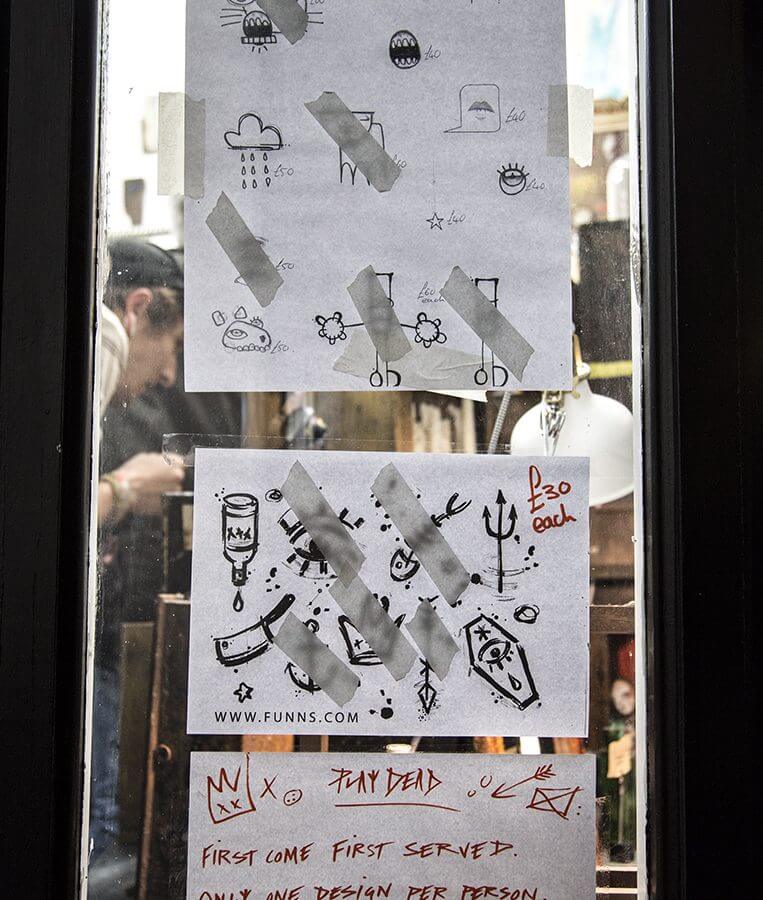 £40
£40
£50
£40
£40
£40
£50
£60
each
£50
£30
each
XXX
WWW.FUNNS.COM
PLAY DEAD
FIRST COME FIRST SERVED.
ONLY ONE DESIGN PER PERSON.